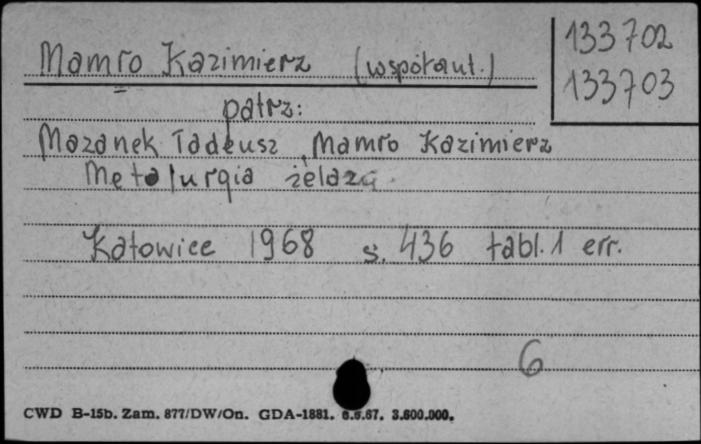 133702
Mamro Kazimierz (współaut.)
133703
patrz:
Mazanek Tadeusz, Mamro Kazimierz
Metalurgia żelaza.
Katowice 1968 s. 436 tabl. 1 err.
6
CWD B-15b. Zam. 877/DW/On. GDA-1881. 6.6.67. 3.600.000.